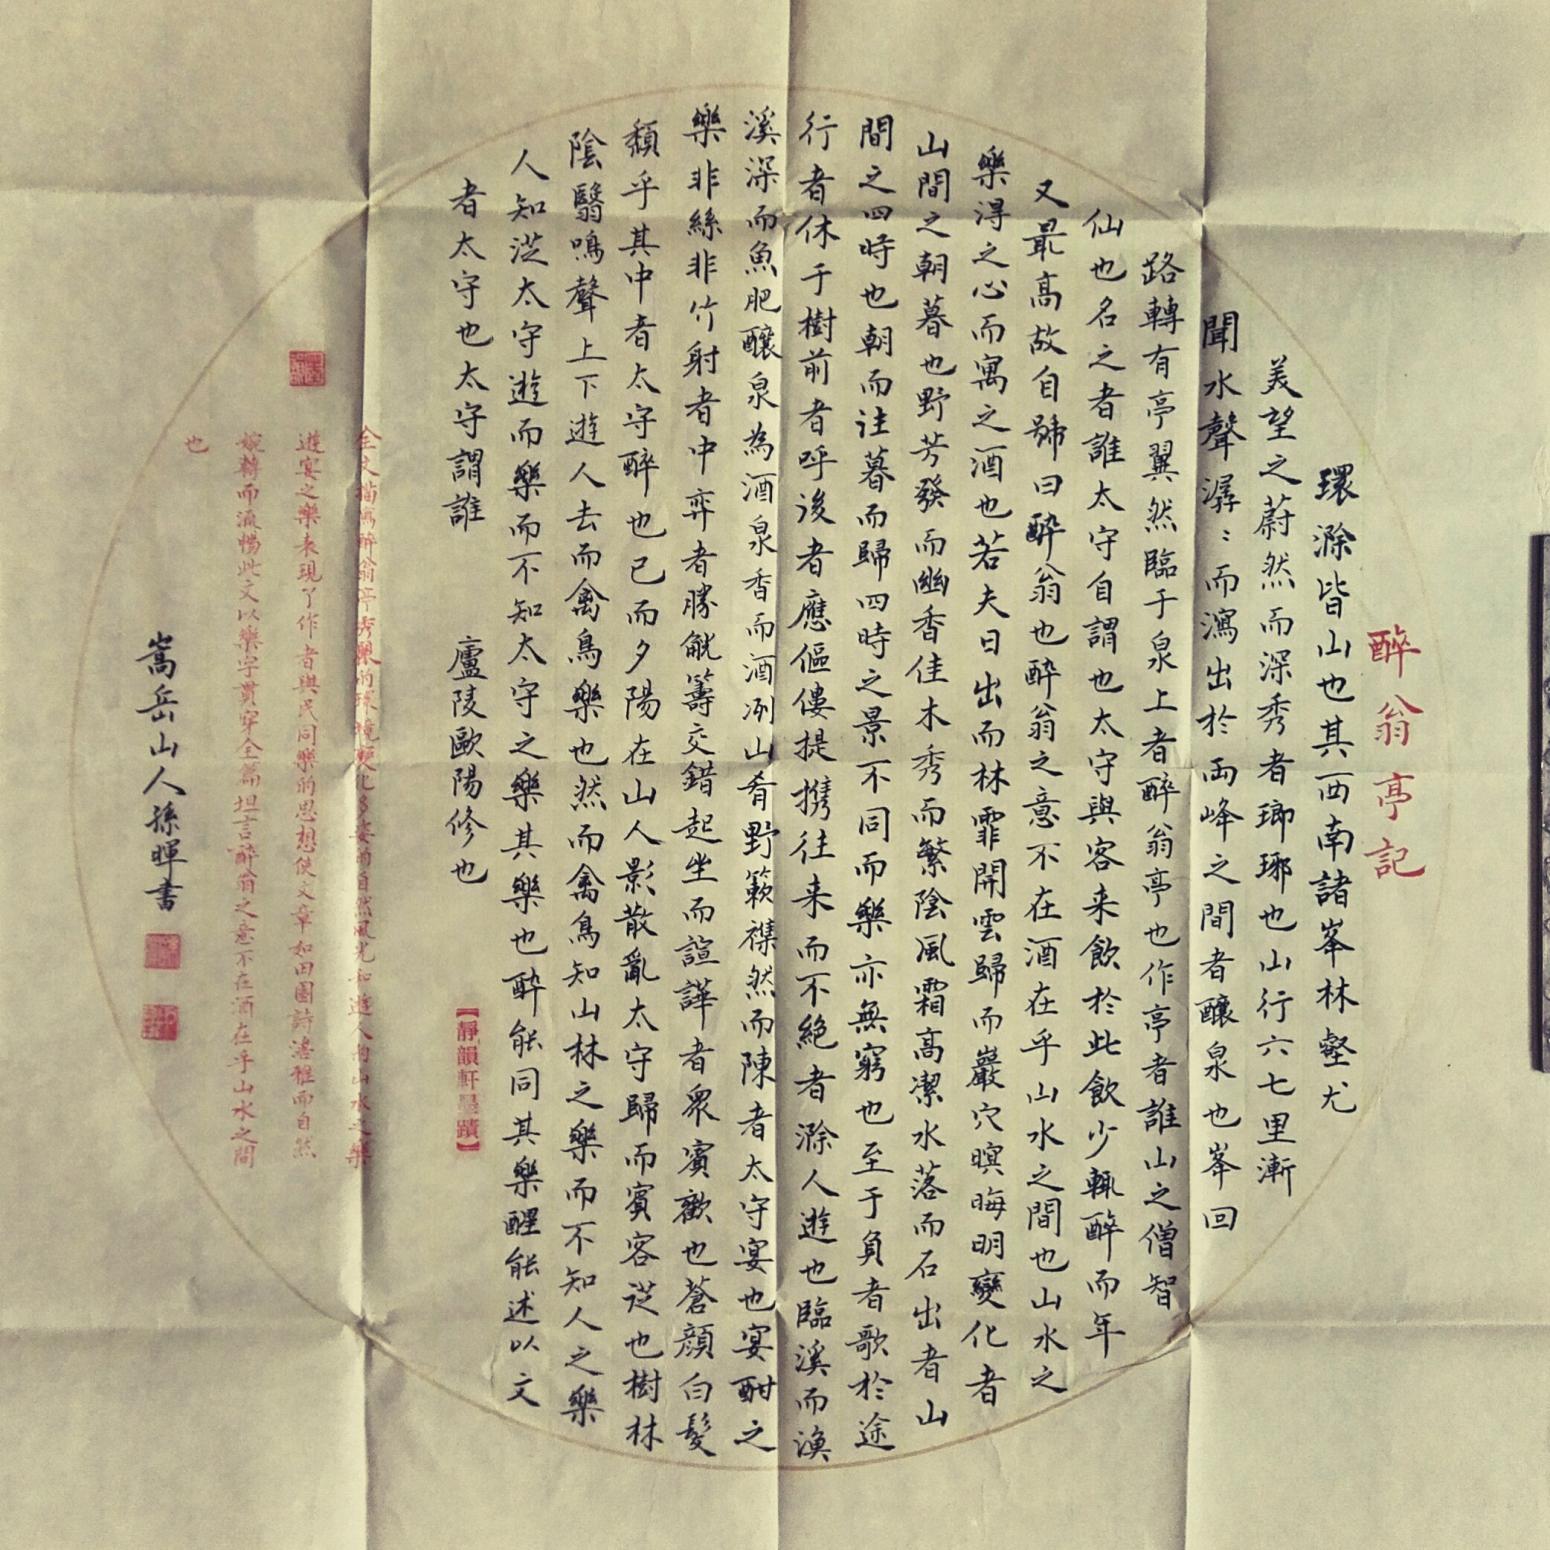 醉翁亭記
環滁皆山也其西南諸峯林壑尤
美望之蔚然而深秀者瑯琊也山行六七里漸
聞水聲潺〻而瀉出於兩峰之間者釀泉也峯回
路轉有亭翼然臨于泉上者醉翁亭也作亭者誰山之僧智
仙也名之者誰太守自謂也太守與客来飲於此飲少輒醉而年
又最高故自號曰醉翁也醉翁之意不在酒在乎山水之間也山水之
樂得之心而寓之酒也若夫日出而林霏開雲歸而巖穴暝晦明變化者
山間之朝暮也野芳發而幽香佳木秀而繁陰風霜高潔水落而石出者山
間之四時也朝而往暮而歸四時之景不同而樂亦無窮也至于負者歌於途
行者休于樹前者呼後者應傴僂提携往来而不絶者滁人遊也臨溪而漁
溪深而魚肥釀泉為酒泉香而酒冽山肴野蔌襍然而陳者太守宴也宴酣之
樂非絲非竹射者中弈者勝觥籌交錯起坐而諠譁者衆賓歡也蒼顔白髮
頹乎其中者太守醉也已而夕陽在山人影散亂太守歸而賓客從也樹林
陰翳鳴聲上下遊人去而禽鳥樂也然而禽鳥知山林之樂而不知人之樂
人知從太守遊而樂而不知太守之樂其樂也醉能同其樂醒能述以文
者太守也太守謂誰 廬陵歐陽修也
【靜韻軒墨蹟】
全文描寫醉翁亭秀麗的環境變化多姿的自然風光和遊人的山水之樂
遊宴之樂表現了作者與民同樂的思想使文章如田園詩淡雅而自然
婉轉而流暢此文以樂字貫穿全篇坦言醉翁之意不在酒在乎山水之間
也
嵩岳山人孫暉書